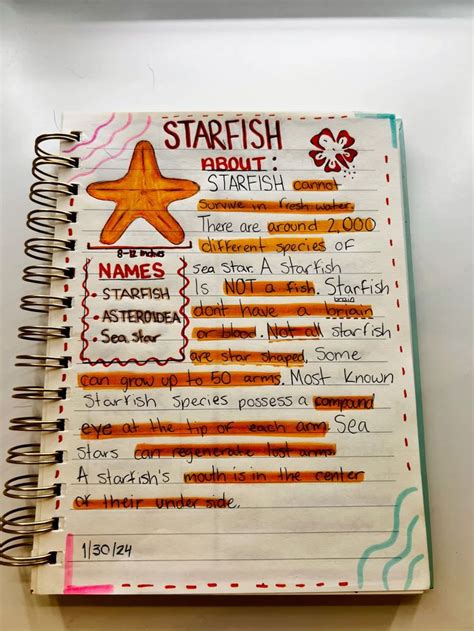 STARFISH
ABOUT:
STARFISH cannot
survive in fresh water.
There are around 2,000
different species of
sea star. A starfish
Is NOT a fish. Starfish
don't have a briain
brain
or blood. Not all starfish
are star shaped. Some
can grow up to 50 arms. Most known
starfish species possess a compound
eye at the tip of each arm. Sea
stars can regenerate lost arms.
A starfish's mouth is in the center
of their under side.
8-12 inches
NAMES
• STARFISH
• ASTEROIDEA
• Sea star
1/30/24